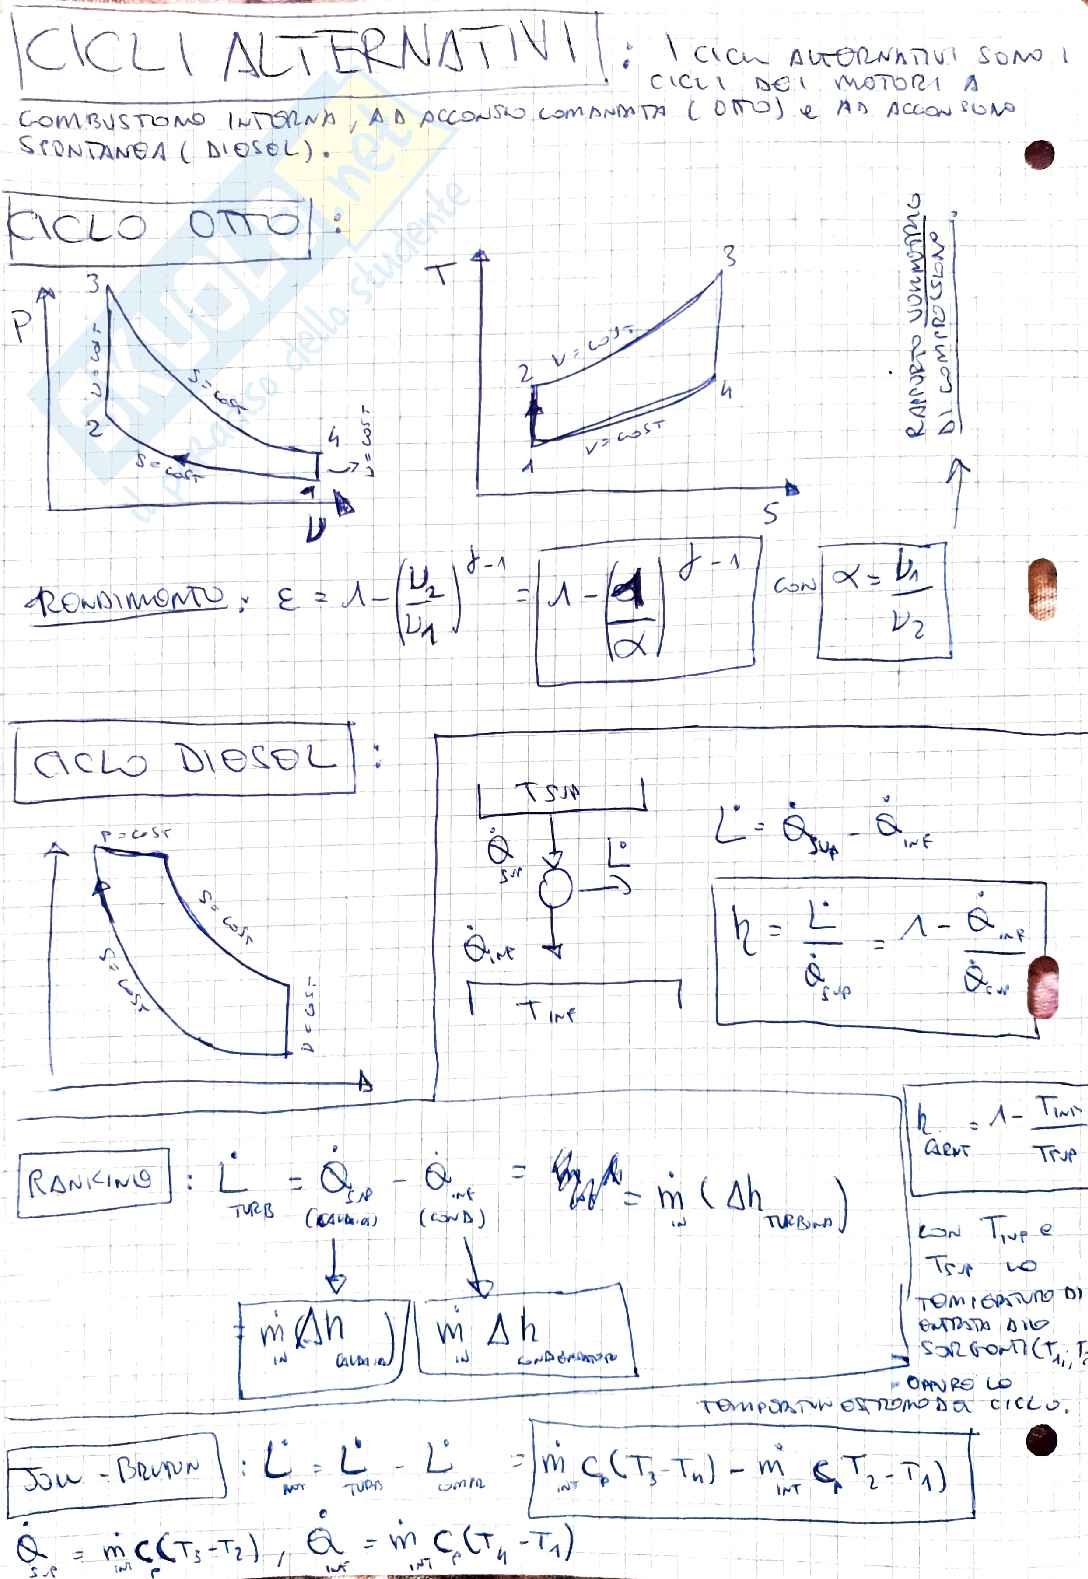 CICLI ALTERNATIVI : I CICLI ALTERNATIVI SONO I
CICLI DEI MOTORI A
COMBUSTIONE INTERNA, AD ACCENSIO COMANDATA (OTTO) e AD ACCENSIONE
SPONTANEA (DIESEL).
SKUOLA.net
al passo dello studente
CICLO OTTO :
P
3
2
4
1
V
V = COST
S = COST
S = COST
V = COST
T
3
2
4
1
S
V = COST
V = COST
RAPPORTO VOLUMETRICO
DI COMPRESSIONE
RENDIMENTO : ε = 1 - (V2/V1)^γ-1 = 1 - (1/α)^γ-1 CON α = V1/V2
CICLO DIESEL :
P = COST
S = COST
S = COST
V = COST
T SUP
Q̇ SUP
L̇
Q̇ INF
T INF
L̇ = Q̇ SUP - Q̇ INF
η = L̇/Q̇ SUP = 1 - Q̇ INF/Q̇ SUP
η CARNOT = 1 - T INF/T SUP
CON T INF e
T SUP LE
TEMPERATURE DI
ENTRATA DELLE
SORGENTI (T1, T
OPPURE LE
TEMPERATURE ESTREME DEL CICLO.
RANKINE : L̇ TURB = Q̇ SUP - Q̇ INF = = ṁ IN (Δh TURBINA)
(CALDAIA) (COND)
= ṁ IN (Δh CALDAIA)
ṁ IN Δh CONDENSATORE
JOULE - BRAYTON : L̇ NET = L̇ TURB - L̇ COMPR = ṁ INT Cp (T3 - T4) - ṁ INT Cp T2 - T1)
Q̇ SUP = ṁ INT Cp (T3 - T2) , Q̇ INF = ṁ INT Cp (T4 - T1)